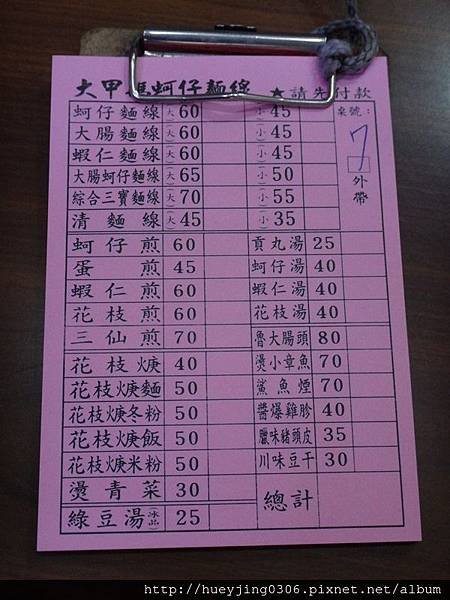 大甲 蚵仔麵線 ★請先付款
蚵仔麵線 (大) 60 (小) 45 桌號:
大腸麵線 (大) 60 (小) 45 7
蝦仁麵線 (大) 60 (小) 45
大腸蚵仔麵線 (大) 65 (小) 50 外帶
綜合三寶麵線 (大) 70 (小) 55
清麵線 (大) 45 (小) 35
蚵仔煎 60 貢丸湯 25
蛋煎 45 蚵仔湯 40
蝦仁煎 60 蝦仁湯 40
花枝煎 60 花枝湯 40
三仙煎 70 魯大腸頭 80
花枝焿 40 燙小章魚 70
花枝焿麵 50 鯊魚煙 70
花枝焿冬粉 50 醬爆雞胗 40
花枝焿飯 50 臘味豬頭皮 35
花枝焿米粉 50 川味豆干 30
燙青菜 30 總計
綠豆湯 (冰品) 25
http://hueyjing0306.pixnet.net/album